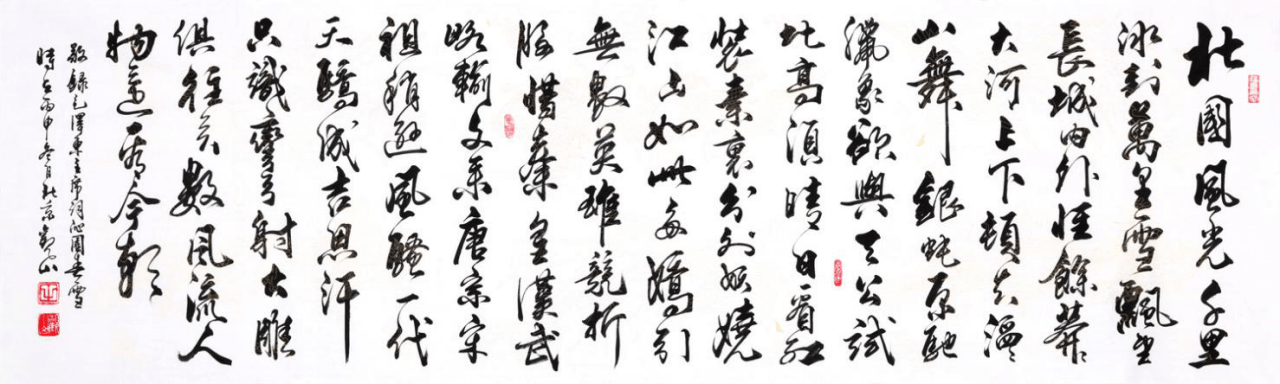 北國風光千里
冰封萬里雪飄望
長城内外惟餘莽々
大河上下頓失滔々
山舞銀蛇原馳
臘象欲與天公試
比高須晴日看紅
裝素裹分外妖嬈
江山如此多嬌引
無數英雄競折
腰惜秦皇漢武
略輸文采唐宗宋
祖稍遜風騷一代
天驕成吉思汗
只識彎弓射大雕
俱往矣數風流人
物還看今朝
敬録毛澤東主席詞沁園春雪
時在丙申冬月於京